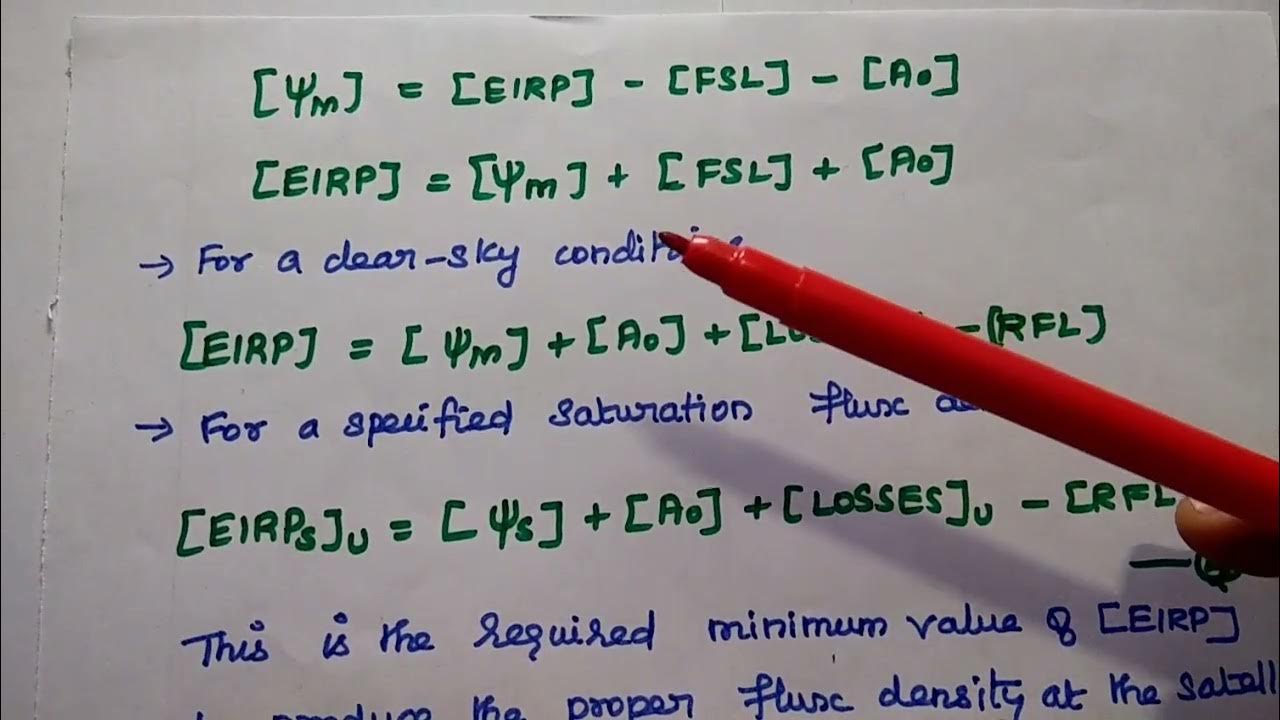 [Ψm] = [EIRP] - [FSL] - [A0]
[EIRP] = [Ψm] + [FSL] + [A0]
→ For a clear-sky
[EIRP] = [Ψm] + [A0] + - [RFL]
→ For a specified saturation flux
[EIRPS]U = [ΨS] + [A0] + [LOSSES]U - [RFL
This is the required minimum value of [EIRP]
the proper flux density at the